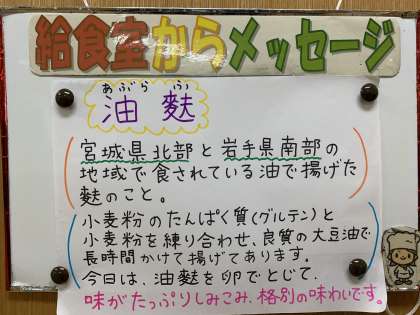 給食室からメッセージ
あぶら ふ
油 麩
宮城県北部と岩手県南部の
地域で食されている油で揚げた
麩のこと。
小麦粉のたんぱく質(グルテン)と
小麦粉を練り合わせ、良質の大豆油で
長時間かけて揚げてあります。
今日は、油麩を卵でとじて、
味がたっぷりしみこみ、格別の味わいです。